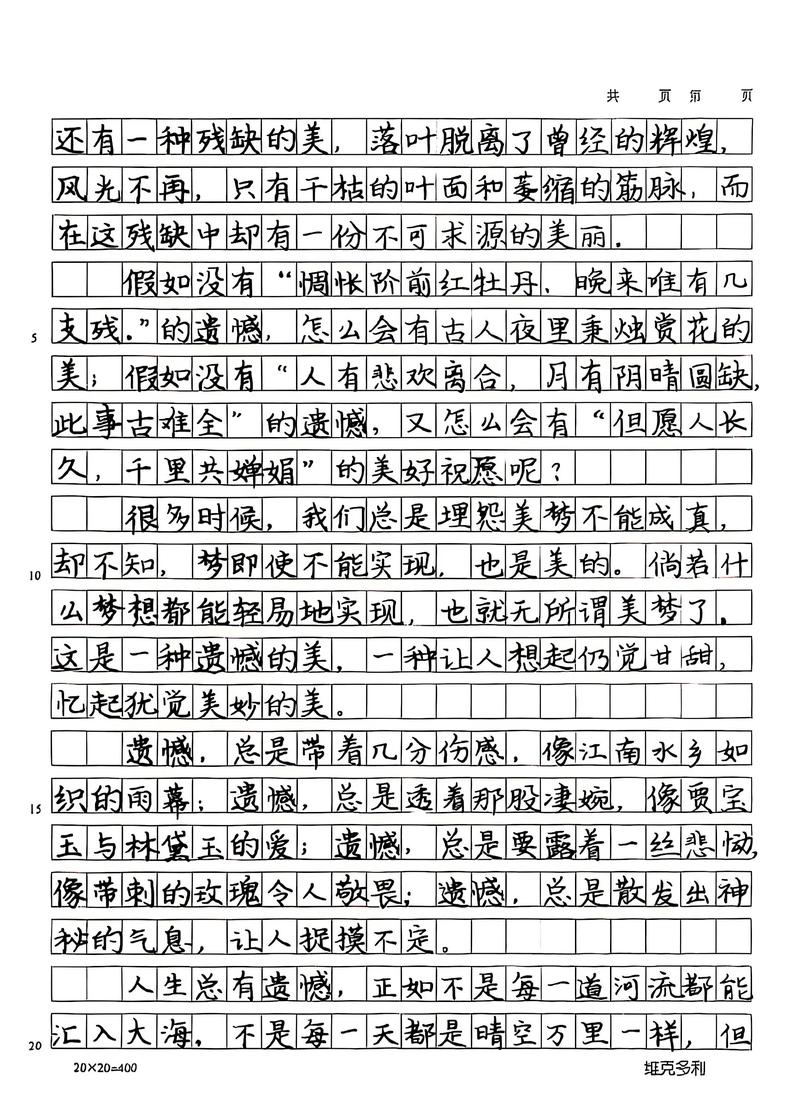 共 页 第 页
还有一种残缺的美，落叶脱离了曾经的辉煌，
风光不再，只有干枯的叶面和萎缩的筋脉，而
在这残缺中却有一份不可求源的美丽．
假如没有“惆怅阶前红牡丹，晚来唯有几
5 支残．”的遗憾，怎么会有古人夜里秉烛赏花的
美；假如没有“人有悲欢离合，月有阴晴圆缺，
此事古难全”的遗憾，又怎么会有“但愿人长
久，千里共婵娟”的美好祝愿呢？
很多时候，我们总是埋怨美梦不能成真，
10 却不知，梦即使不能实现，也是美的。倘若什
么梦想都能轻易地实现，也就无所谓美梦了．
这是一种遗憾的美，一种让人想起仍觉甘甜，
忆起犹觉美妙的美。
遗憾，总是带着几分伤感，像江南水乡如
15 织的雨幕；遗憾，总是透着那股凄婉，像贾宝
玉与林黛玉的爱；遗憾，总是要露着一丝悲恸，
像带刺的玫瑰令人敬畏；遗憾，总是散发出神
秘的气息，让人捉摸不定。
人生总有遗憾，正如不是每一道河流都能
20 汇入大海，不是每一天都是晴空万里一样，但
20×20=400 维克多利